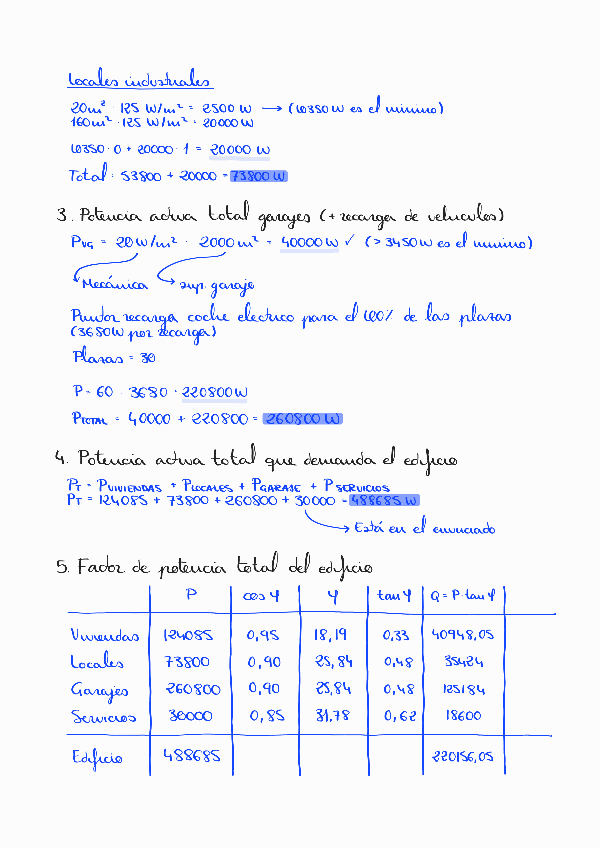 Locales industriales
20m² · 125 W/m² = 2500 W → (10350 W es el minimo)
160m² · 125 W/m² = 20000 W
10350 · 0 + 20000 · 1 = 20000 W
Total = 53800 + 20000 = 73800 W
3. Potencia activa total garajes (+ recarga de vehiculos)
PVG = 20 W/m² · 2000 m² = 40000 W ✓ (> 3450 W es el minimo)
Mecánica sup. garaje
Puntor recarga coche electrico para el 100% de las plazas
(3680W por recarga)
Plazas = 30
P = 60 · 3680 = 220800 W
PTOTAL = 40000 + 220800 = 260800 W
4. Potencia activa total que demanda el edificio
PT = PVIVIENDAS + PLOCALES + PGARAJE + PSERVICIOS
PT = 124085 + 73800 + 260800 + 30000 = 488685 W
Está en el enunciado
5. Factor de potencia total del edificio
P cos φ φ tan φ Q = P · tan φ
Viviendas 124085 0,95 18,19 0,33 40948,05
Locales 73800 0,90 25,84 0,48 35424
Garajes 260800 0,90 25,84 0,48 125184
Servicios 30000 0,85 31,78 0,62 18600
Edificio 488685 220156,05